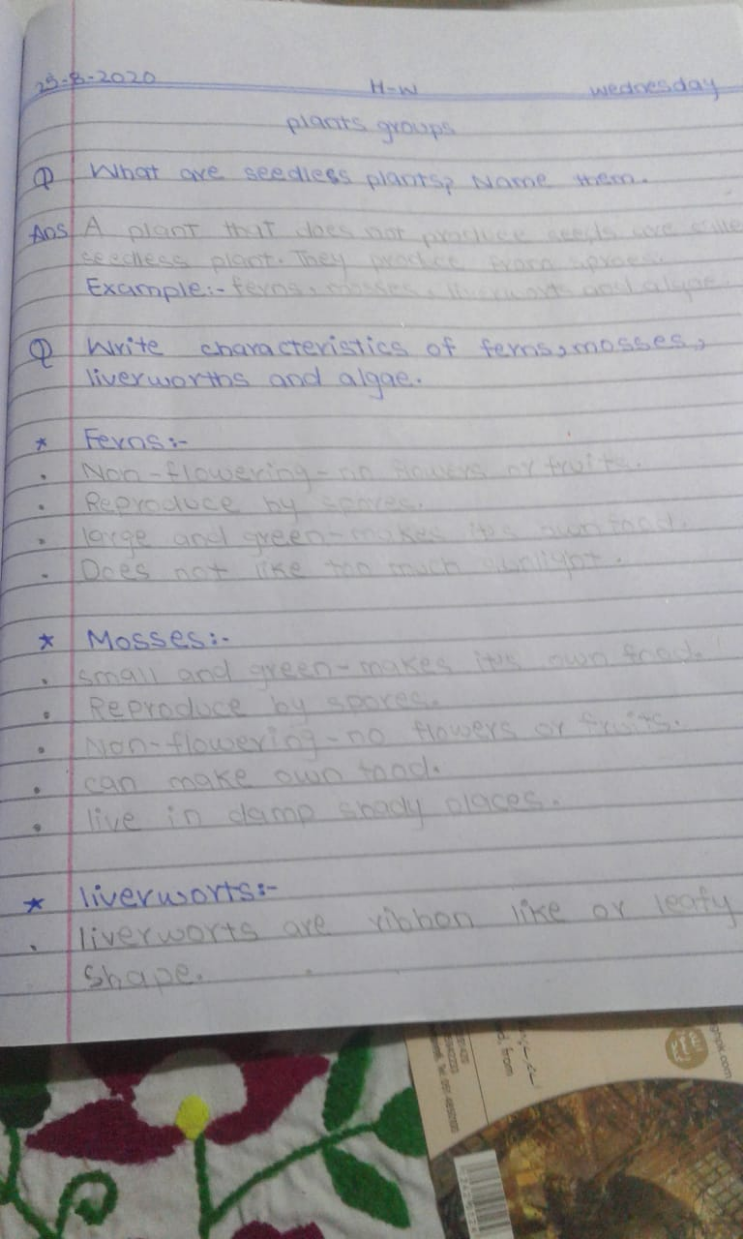 29-8-2020 H-W wednesday
plants groups
Q What are seedless plants? Name them.
Ans A plant that does not produce seeds are calle
seedless plant. They produce from sproes.
Example:- ferns, mosses, liverworts and algae.
Q Write characteristics of ferns, mosses,
liverworths and algae.
* Ferns:-
. Non-flowering-no flowers or fruits.
. Reproduce by spores.
. large and green-makes its own food.
. Does not like too much sunlight.
* Mosses:-
. small and green-makes its own food.
. Reproduce by spores.
. Non-flowering-no flowers or fruits.
. can make own food.
. live in damp shady places.
* liverworts:-
. liverworts are ribbon like or leafy
shape.
ghpk.com
ed, from